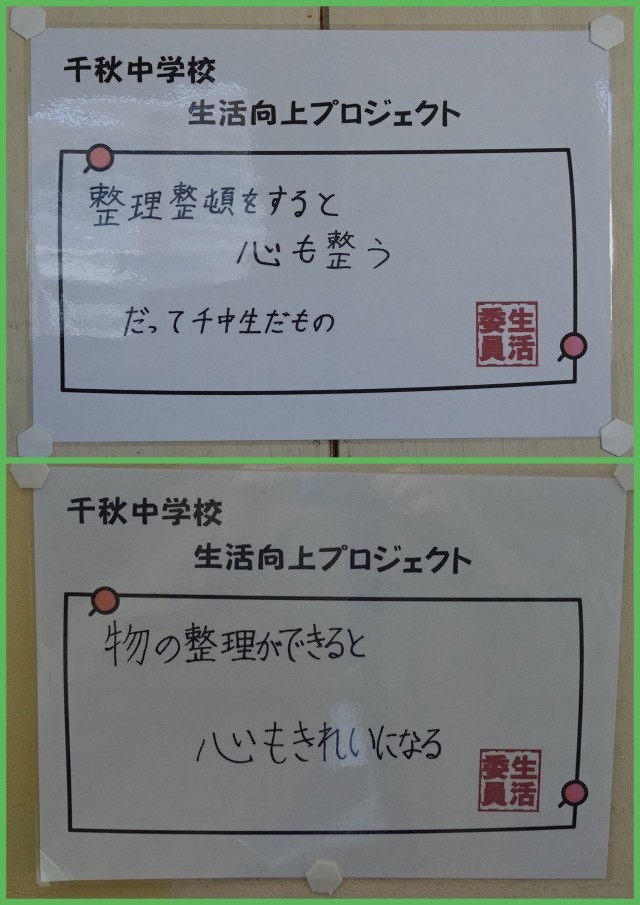 千秋中学校
生活向上プロジェクト
整理整頓をすると
心も整う
だって千中生だもの
生活
委員
千秋中学校
生活向上プロジェクト
物の整理ができると
心もきれいになる
生活
委員